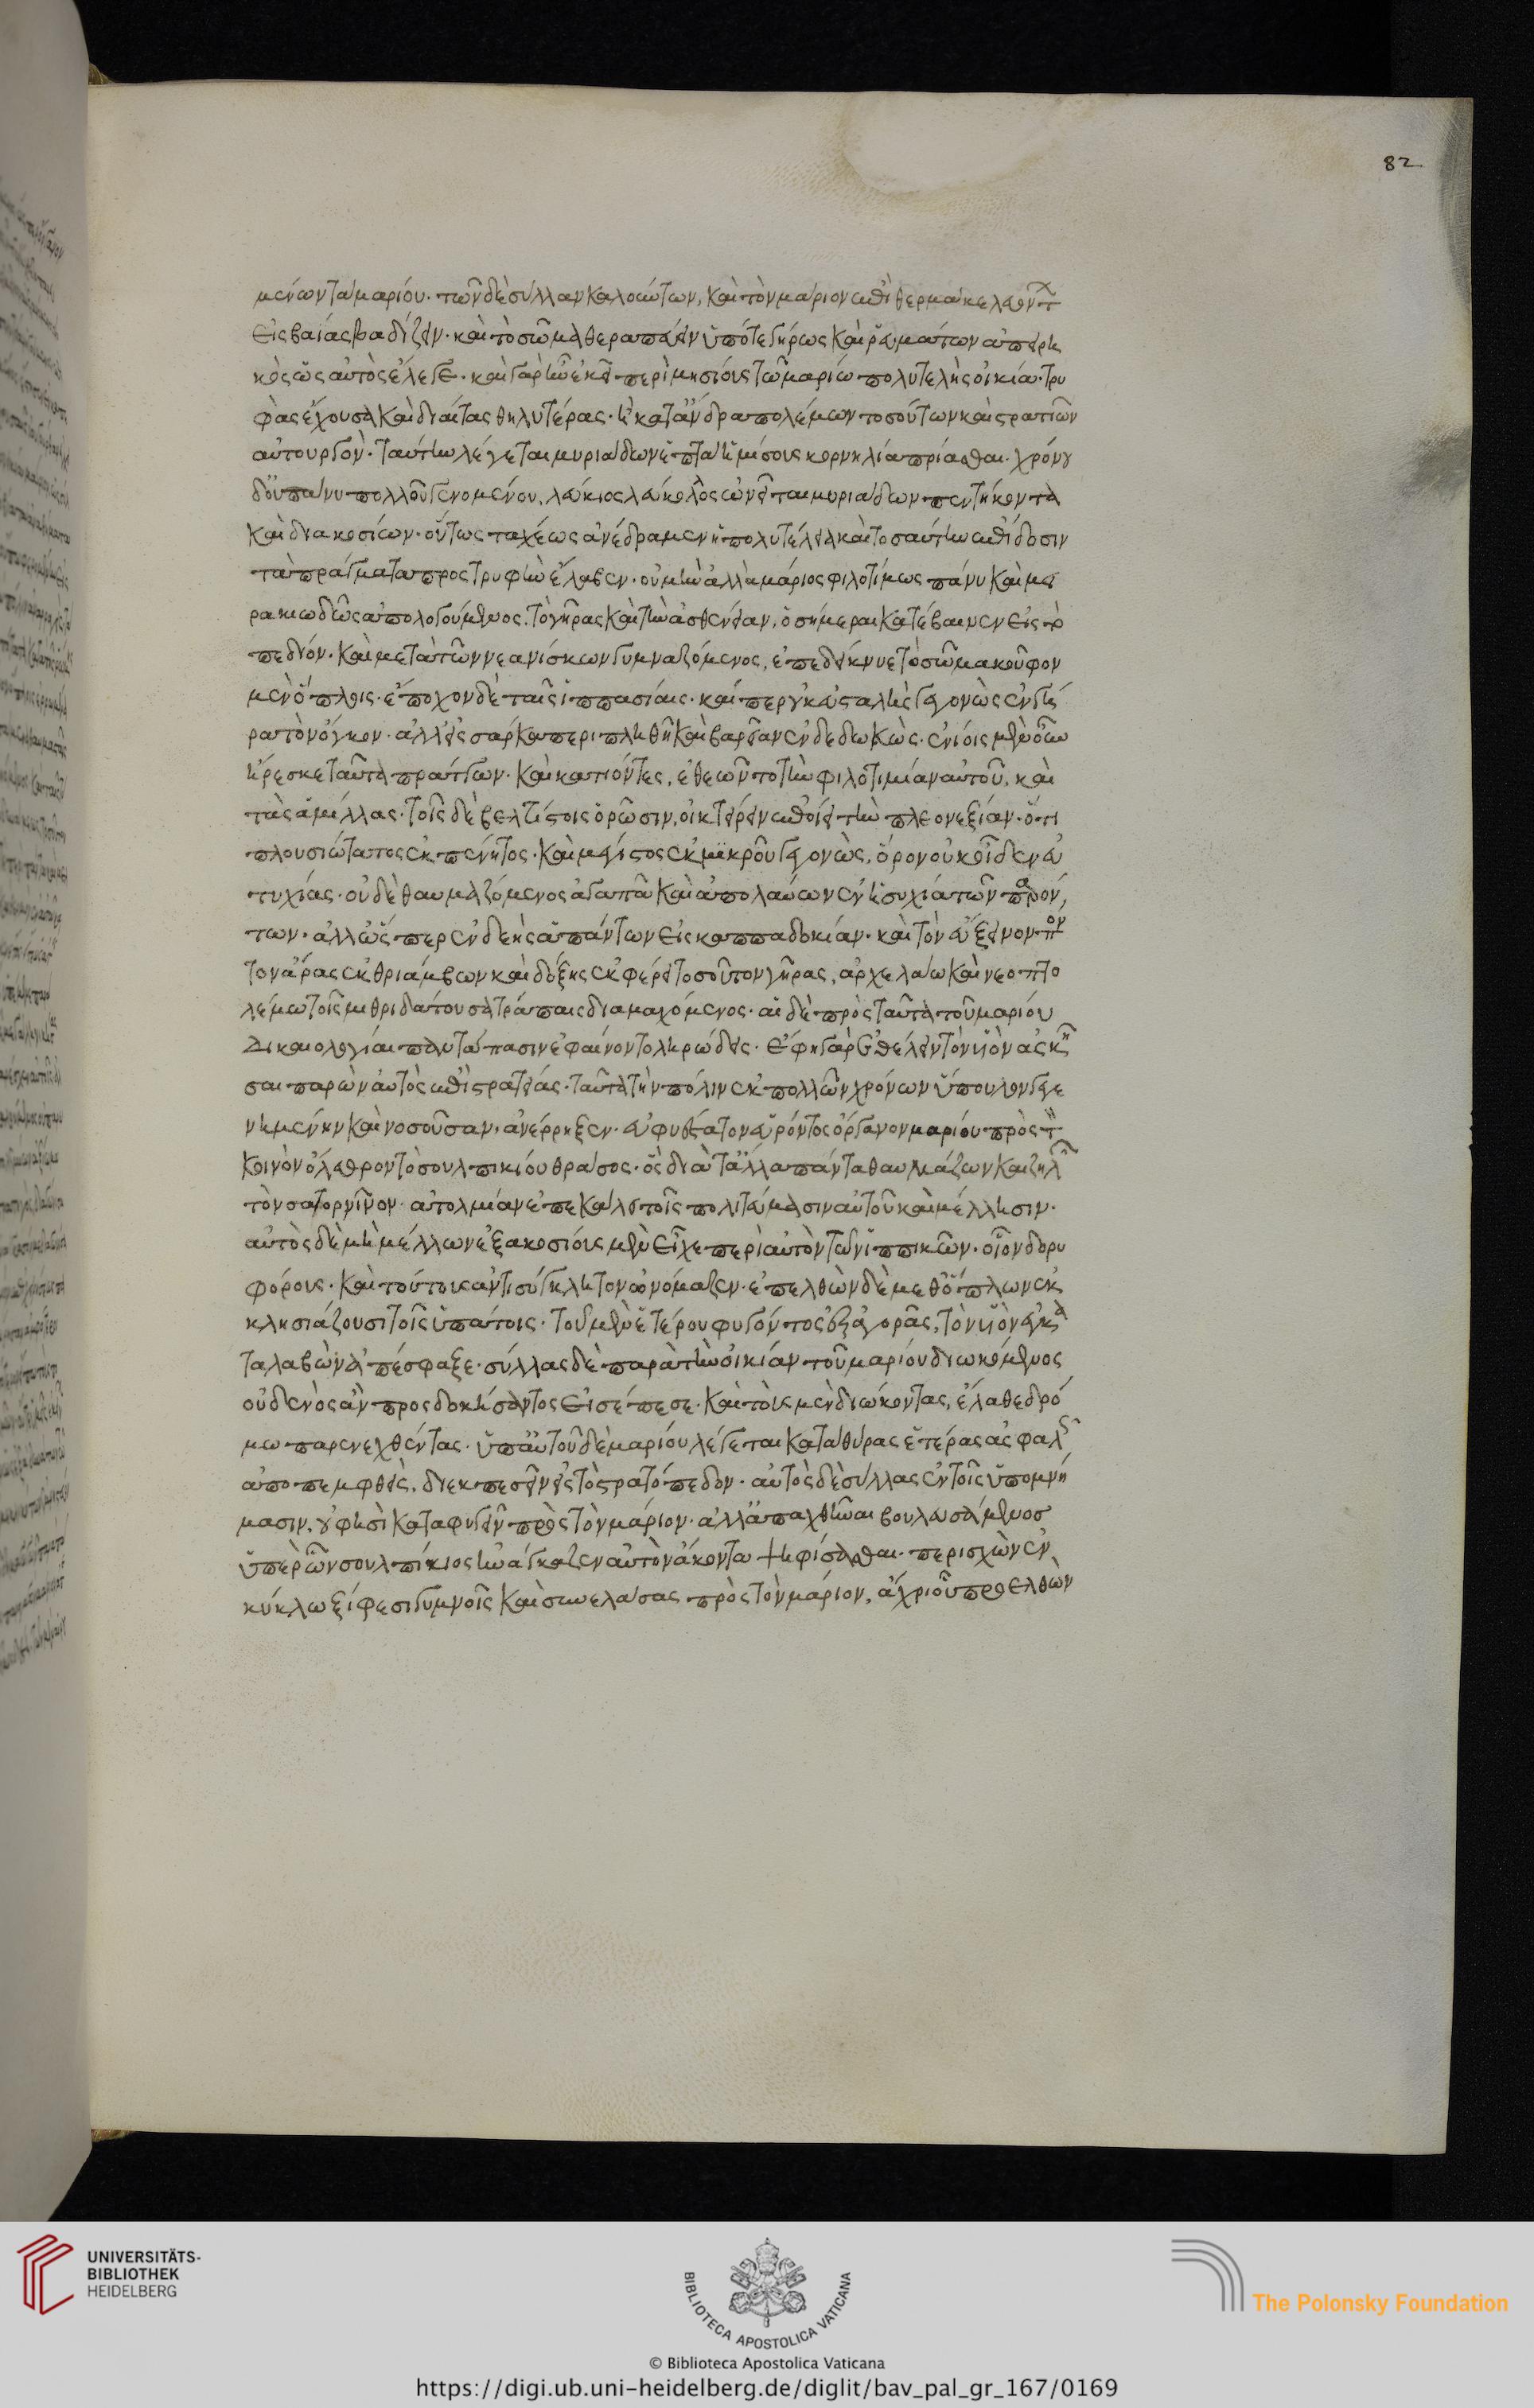 82
μένων τὰ μαρίου· τῶν δὲ σύλλαν καλούντων, καὶ τὸν μάριον ἐπὶ θερμὰ κελευόντ
εἰς βαΐας βαδίζειν· καὶ τὸ σῶμα θεραπεύειν ὑπό τε γήρως καὶ ῥευμάτων ἀπειρη
κὸς ὡς αὐτὸς ἔλεγε· καὶ γὰρ ἦν ἐκεῖ περὶ μησίους τῶ μαρίω πολυτελὴς οἰκία· τρυ
φὰς ἔχουσα καὶ διαίτας θηλυτέρας· ἢ κατ' ἄνδρα πολέμων τοσούτων καὶ στρατιῶν
αὐτουργὸν· ταύτην λέγεται μυριάδων ἑπτὰ ἡμίσους κορνηλία πρίασθαι· χρόνου
δ' οὐ πάνυ πολλοῦ γενομένου, λεύκιος λεύκολος ὠνεῖται μυριάδων πεντήκοντα
καὶ διακοσίων· οὕτως ταχέως ἀνέδραμεν ἡ πολυτέλεια καὶ τοσαύτην ἐπίδοσιν
τὰ πράγματα πρὸς τρυφὴν ἔλαβεν· οὐ μὴν ἀλλὰ μάριος φιλοτίμως πάνυ καὶ μει
ρακιωδῶς ἀπολογούμενος τὸ γῆρας καὶ τὴν ἀσθένειαν, ὁσημέραι κατέβαινεν εἰς τὸ
πεδίον· καὶ μετὰ τῶν νεανίσκων γυμναζόμενος, ἐπεδείκνυε τὸ σῶμα κοῦφον
μὲν ὅπλοις· ἔποχον δὲ ταῖς ἱππασίαις· καίπερ οὐκ εὐσταλὴς γεγονὼς ἐν γή
ρα τὸν ὄγκον· ἀλλ' εἰς σάρκα περιπληθῆ καὶ βαρεῖαν ἐνδεδωκὼς· ἐνίοις μὲν οὖν
ἤρεσκε ταῦτα πράττων· καὶ κατιόντες, ἐθεῶντο τὴν φιλοτιμίαν αὐτοῦ, καὶ
τὰς ἁμίλλας· τοῖς δὲ βελτίστοις ὁρῶσιν, οἰκτείρειν ἐποίει τὴν πλεονεξίαν· ὅτι
πλουσιώτατος ἐκ πένητος· καὶ μέγιστος ἐκ μικροῦ γεγονὼς, ὅρον οὐκ οἶδεν εὐ
τυχίας· οὐδὲ θαυμαζόμενος ἀγαπᾶ καὶ ἀπολαύων ἐν ἡσυχία τῶν παρόν
των· ἀλλ' ὥσπερ ἐνδεὴς ἁπάντων εἰς καππαδοκίαν· καὶ τὸν εὔξεινον πον
τον ἄρας ἐκ θριάμβων καὶ δόξης ἐκφέρει τοσοῦτον γῆρας, ἀρχελάω καὶ νεοπτο
λέμω τοῖς μιθριδάτου σατράπαις διαμαχόμενος· αἱ δὲ πρὸς ταῦτα τοῦ μαρίου
δικαιολογίαι παντάπασιν ἐφαίνοντο ληρώδεις· ἔφη γὰρ ἐθέλειν τὸν υἱὸν ἀσκῆ
σαι παρὼν αὐτὸς ἐπὶ στρατείας· ταῦτα τὴν πόλιν ἐκ πολλῶν χρόνων ὕπουλον γεγε
νημένην καὶ νοσοῦσαν· ἀνέρρηξεν· εὐφυέστατον εὑρόντος ὄργανον μαρίου πρὸς τ
κοινὸν ὄλεθρον τὸ σουλπικίου θράσος· ὃς διὰ τἆλλα πάντα θαυμάζων καὶ ζηλῶ
τὸν σατορνῖνον· ἀτολμίαν ἐπεκάλει τοῖς πολιτεύμασιν αὐτοῦ καὶ μέλλησιν·
αὐτὸς δὲ μὴ μέλλων ἑξακοσίους μὲν εἶχε περὶ αὐτὸν τῶν ἱππικῶν· οἷον δορυ
φόρους· καὶ τούτους ἀντισύγκλητον ὠνόμαζεν· ἐπελθὼν δὲ μεθ' ὅπλων ἐκ
κλησιάζουσι τοῖς ὑπάτοις· τοῦ μὲν ἑτέρου φυγόντος ἐξ ἀγορᾶς, τὸν υἱὸν ἐγκα
ταλαβὼν ἀπέσφαξε· σύλλας δὲ παρὰ τὴν οἰκίαν τοῦ μαρίου διωκόμενος
οὐδενὸς ἂν προσδοκήσαντος εἰσέπεσε· καὶ τοὺς μὲν διώκοντας, ἔλαθε δρό
μω παρενεχθέντας· ὑπ' αὐτοῦ δὲ μαρίου λέγεται κατὰ θύρας ἑτέρας ἀσφαλῶς
ἀποπεμφθεὶς, διεκπεσεῖν εἰς τὸ στρατόπεδον· αὐτὸς δὲ σύλλας ἐν τοῖς ὑπομνή
μασιν, οὔ φησὶ καταφυγεῖν πρὸς τὸν μάριον· ἀλλ' ἀπαχθῆναι βουλευσάμενος
ὑπὲρ ὧν σουλπίκιος ἠνάγκαζεν αὐτὸν ἄκοντα ψηφίσασθαι· περισχὼν ἐν
κύκλω ξίφεσι γυμνοῖς καὶ συνελάσας πρὸς τὸν μάριον, ἄχρι οὗ προελθὼν
UNIVERSITÄTS-
BIBLIOTHEK
HEIDELBERG
BIBLIOTECA APOSTOLICA VATICANA
The Polonsky Foundation
© Biblioteca Apostolica Vaticana
https://digi.ub.uni-heidelberg.de/diglit/bav_pal_gr_167/0169